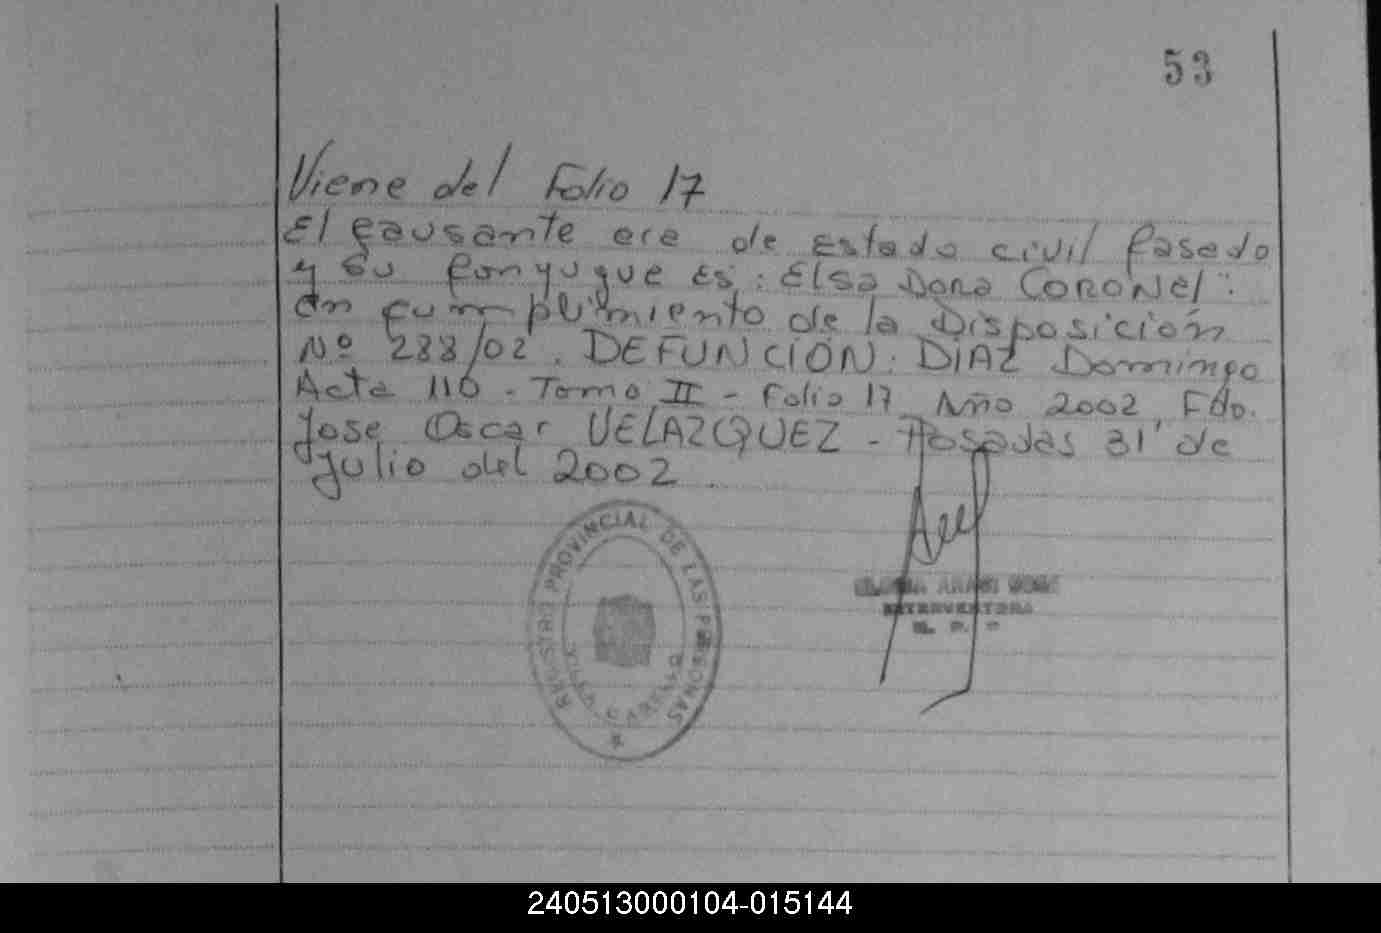 53
Viene del Folio 17
El causante era de Estado civil casado
y su conyugue es: Elsa Dora CORONEl:
en cumplimiento de la Disposición
Nº 288/02. DEFUNCIÓN: DIAZ Domingo
Acta 110 - Tomo II - Folio 17 Año 2002, Fdo.
Jose Oscar VELAZQUEZ - Posadas 31 de
Julio del 2002.
REGISTRO PROVINCIAL DE LAS PERSONAS
INTERVENTORA
240513000104-015144